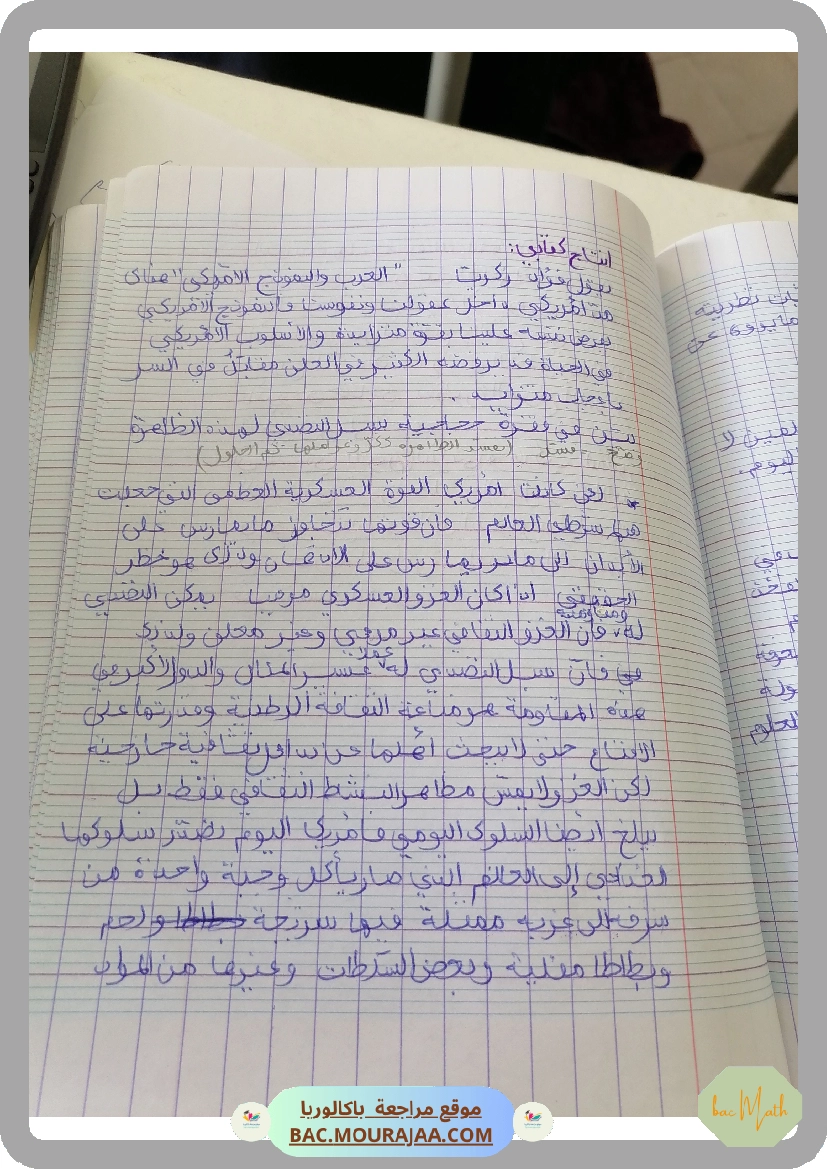 انتاج كتابي:
يقول فؤاد زكريا "العرب والنموذج الأمريكي" هناك
من أمريكي داخل عقولنا ونفوسنا فالنموذج الأمريكي
يفرض نفسه علينا بقوة متزايدة والأسلوب الأمريكي
في الحياة قد يرفضه الكثير في العلن مقابل في السر
بإعجاب متزايد.
بين في فقرة حجاجية سبل التصدي لهذه الظاهرة
وضح (تفسير الظاهرة ثم الحلول)
* لئن كانت أمريكا القوة العسكرية العظمى التي جعلت
منها شرطي العالم فإن قوتها تتجاوز ما يمارس على
الأبدان إلى ما يمارس على الأذهان وذلك هو خطر
الحقيقي إذا كان الغزو العسكري مرئيا يمكن التصدي
له ومقاومته فإن الغزو الثقافي غير مرئي وغير معلن ولذلك
فإن سبل التصدي له عسير المنال والدور الأكبر في
هذه المقاومة هو مناعة الثقافة الوطنية وقدرتها على
الإقناع حتى لا يبحث أهلها عن بدائل ثقافية خارجية
لكن الغزو لا يمس مظاهر النشط الثقافي فقط بل
يبلغ أيضا السلوك اليومي فأمريكا اليوم تصدر سلوكها
الغذائي إلى العالم الذي صار يأكل وجبة واحدة من
شرقه إلى غربه ممثلة فيها شريحة ولحم
وبطاطا مقلية وبعض السلطات وغيرها من المواد
ومايروى عن
لا
اليوم.
العلوم
موقع مراجعة باكالوريا
BAC.MOURAJAA.COM
bac Math